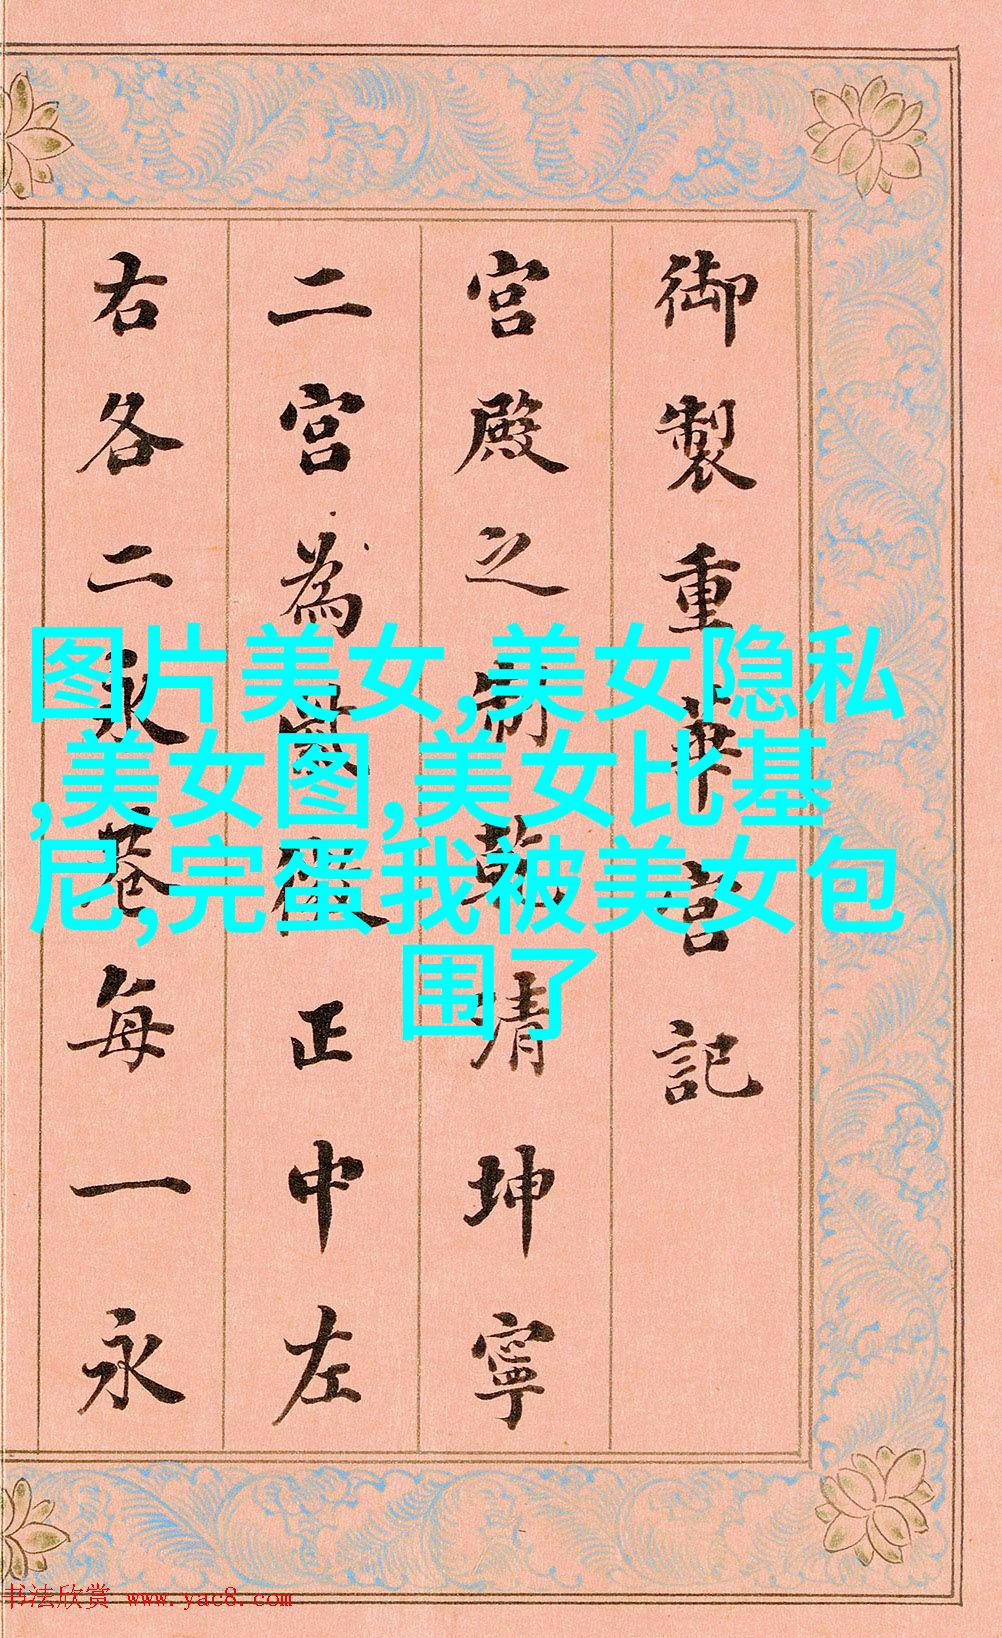 御製重華宮記
宮殿之制乾清坤寧
二宮為正中左
右各二永巷每一永
图片美女,美女隐私
,美女图,美女比基
尼,完蛋我被美女包
围了
书法欣赏 www.yac8.com